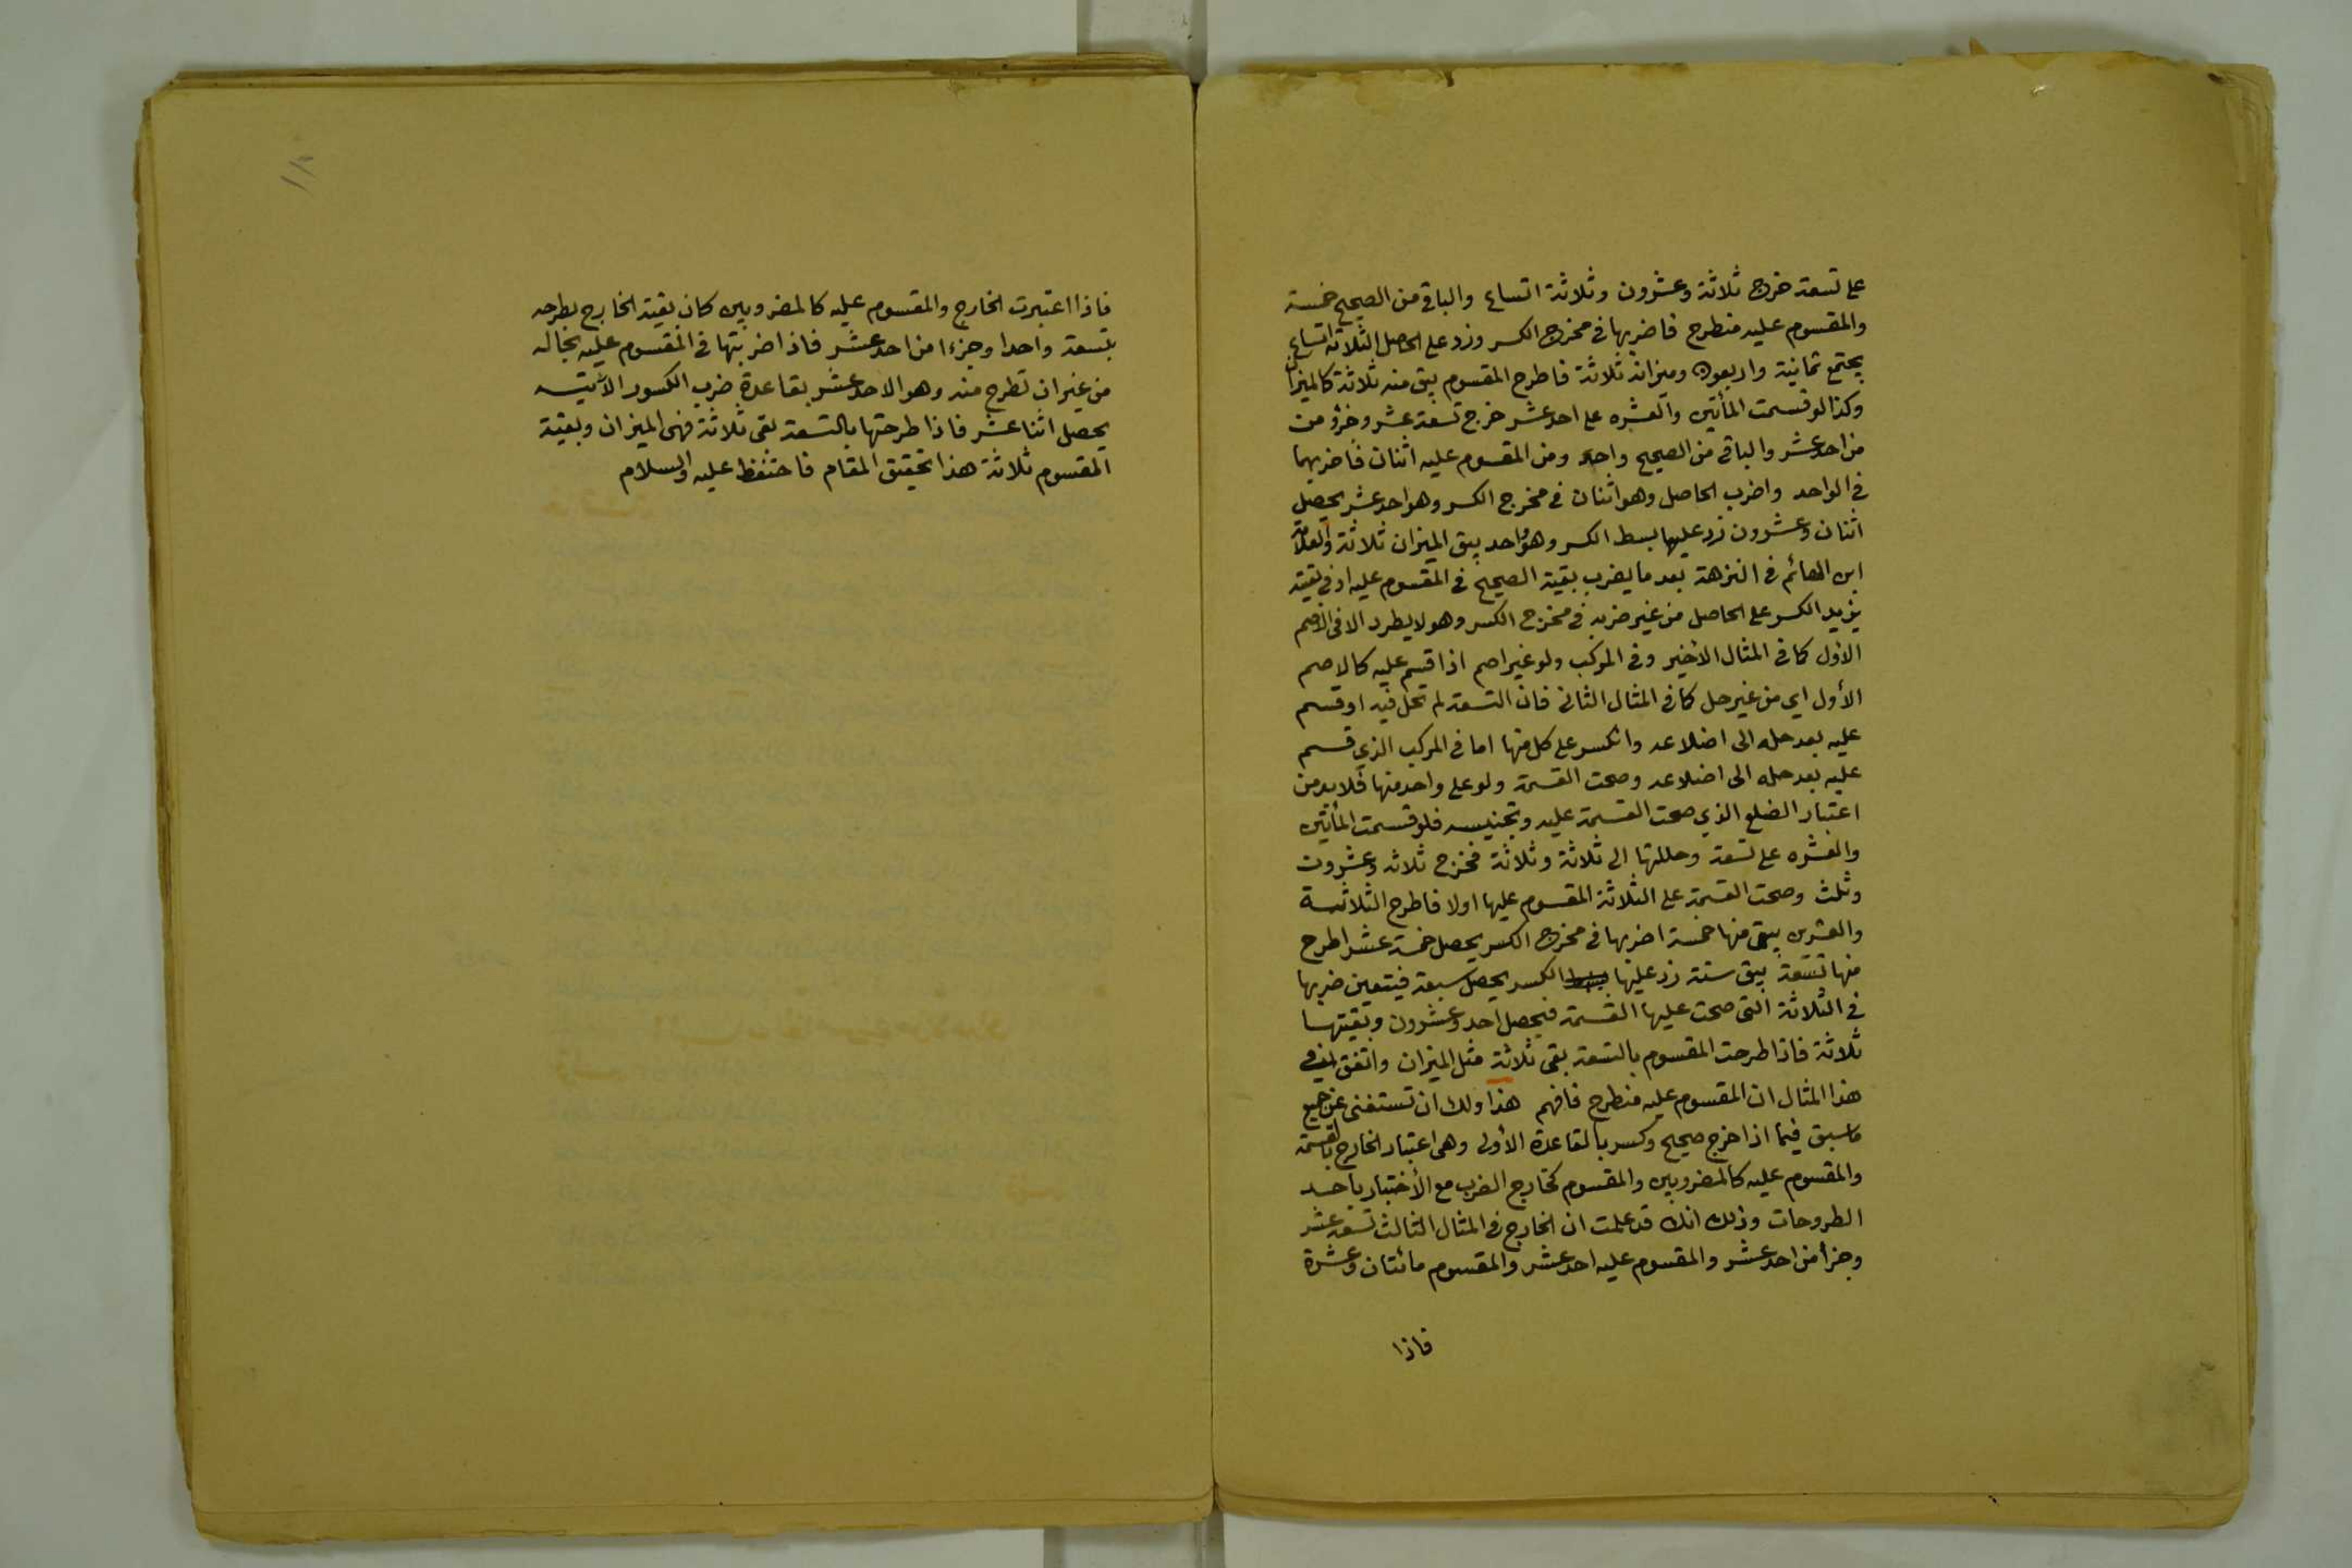 على تسعة خرج ثلاثة وعشرون وثلاثة اتساع والباقي من الصحيح خمسة
والمقسوم عليه منطرح فاضربها في مخرج الكسر وزد على الحاصل الثلاثة اتساع
يجتمع ثمانية واربعون وميزانه ثلاثة فاطرح المقسوم يبق منه ثلاثة كالميزان
وكذا لو قسمت المأتين والعشره على احد عشر خرج تسعة عشر وجزؤ من
من احد عشر والباقي من الصحيح واحد ومن المقسوم عليه اثنان فاضربهما
في الواحد واضرب الحاصل وهو اثنان في مخرج الكسر وهو احد عشر يحصل
اثنان وعشرون زد عليها بسط الكسر وهو واحد يبق الميزان ثلاثة والعلامة
ابن الهائم في النزهة بعد ما يضرب بقية الصحيح في المقسوم عليه او في بقيته
يزيد الكسر على الحاصل من غير ضربه في مخرج الكسر وهو لا يطرد الا في الاصم
الاول كما في المثال الأخير وفي المركب ولو غير اصم اذا قسم عليه كالاصم
الأول اي من غير حل كما في المثال الثاني فان التسعة لم تحل فيه او قسم
عليه بعد حله الى اضلاعه وانكسر على كل منها اما في المركب الذي قسم
عليه بعد حله الى اضلاعه وصحت القسمة ولو على واحد منها فلا بد من
اعتبار الضلع الذي صحت القسمة عليه وتجنيسه فلو قسمت المأتين
والعشره على تسعة وحللتها الى ثلاثة وثلاثة فخرج ثلاثه وعشرون
وثلث وصحت القسمة على الثلاثة المقسوم عليها اولا فاطرح الثلاثة
والعشرين يبقى منها خمسة اضربها في مخرج الكسر يحصل خمسة عشر اطرح
منها تسعة يبق ستة زد عليها بسط الكسر يحصل سبعة فيتعين ضربها
في الثلاثة التي صحت عليها القسمة فيحصل احد وعشرون وبقيتها
ثلاثة فاذا طرحت المقسوم بالتسعة بقى ثلاثة مثل الميزان واتفق في
هذا المثال ان المقسوم عليه منطرح فافهم هذا ولك ان تستغنى عن جميع
ما سبق فيما اذا خرج صحيح وكسر بالقاعدة الأولى وهى اعتبار الخارج بالقسمة
والمقسوم عليه كالمضروبين والمقسوم كخارج الضرب مع الأختبار باحد
الطروحات وذلك انك قد علمت ان الخارج في المثال الثالث تسعة عشر
وجزأ من احد عشر والمقسوم عليه احد عشر والمقسوم مائتان وعشرة
فاذا
فاذا اعتبرت الخارج والمقسوم عليه كالمضروبين كان بقية الخارج بطرحه
بتسعة واحدا وجزءا من احد عشر فاذا ضربتها في المقسوم عليه بحاله
من غير ان تطرح منه وهو الاحد عشر بقاعدة ضرب الكسور الآتيه
يحصل اثنا عشر فاذا طرحتها بالتسعة بقى ثلاثة فهى الميزان وبقية
المقسوم ثلاثة هذا تحقيق المقام فاحتفظ عليه والسلام